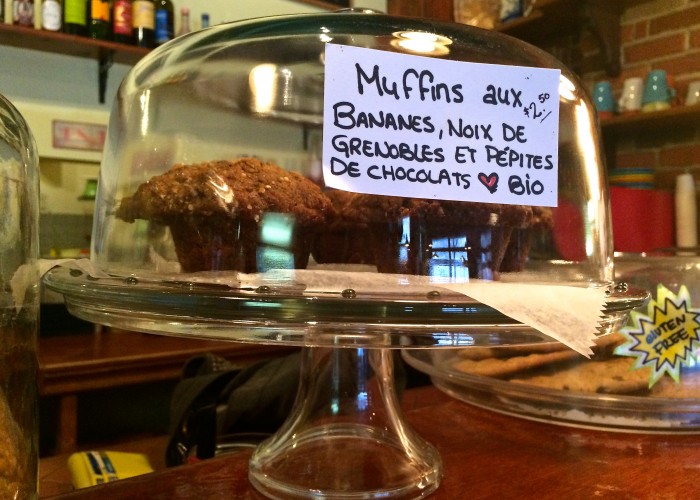 Muffins aux
$2.50/
BANANES, NOIX DE
GRENOBLES ET PÉPITES
DE CHOCOLATS ♥ BiO
GLUTEN
FREE